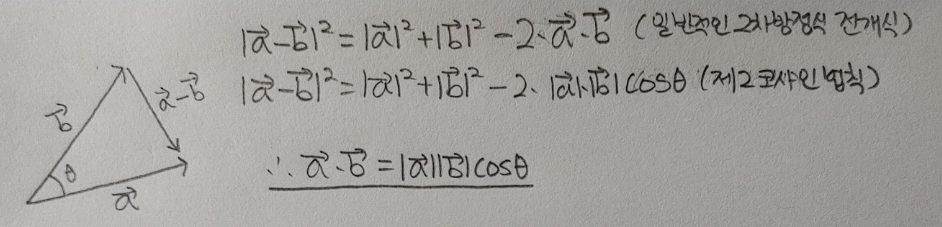 |a⃗-b⃗|² = |a⃗|²+|b⃗|² - 2·a⃗·b⃗ (일반적인 2차방정식 전개식)
|a⃗-b⃗|² = |a⃗|²+|b⃗|² - 2·|a⃗|·|b⃗|cosθ (제2코사인 법칙)
b⃗
a⃗-b⃗
θ
a⃗
∴ a⃗·b⃗ = |a⃗||b⃗|cosθ